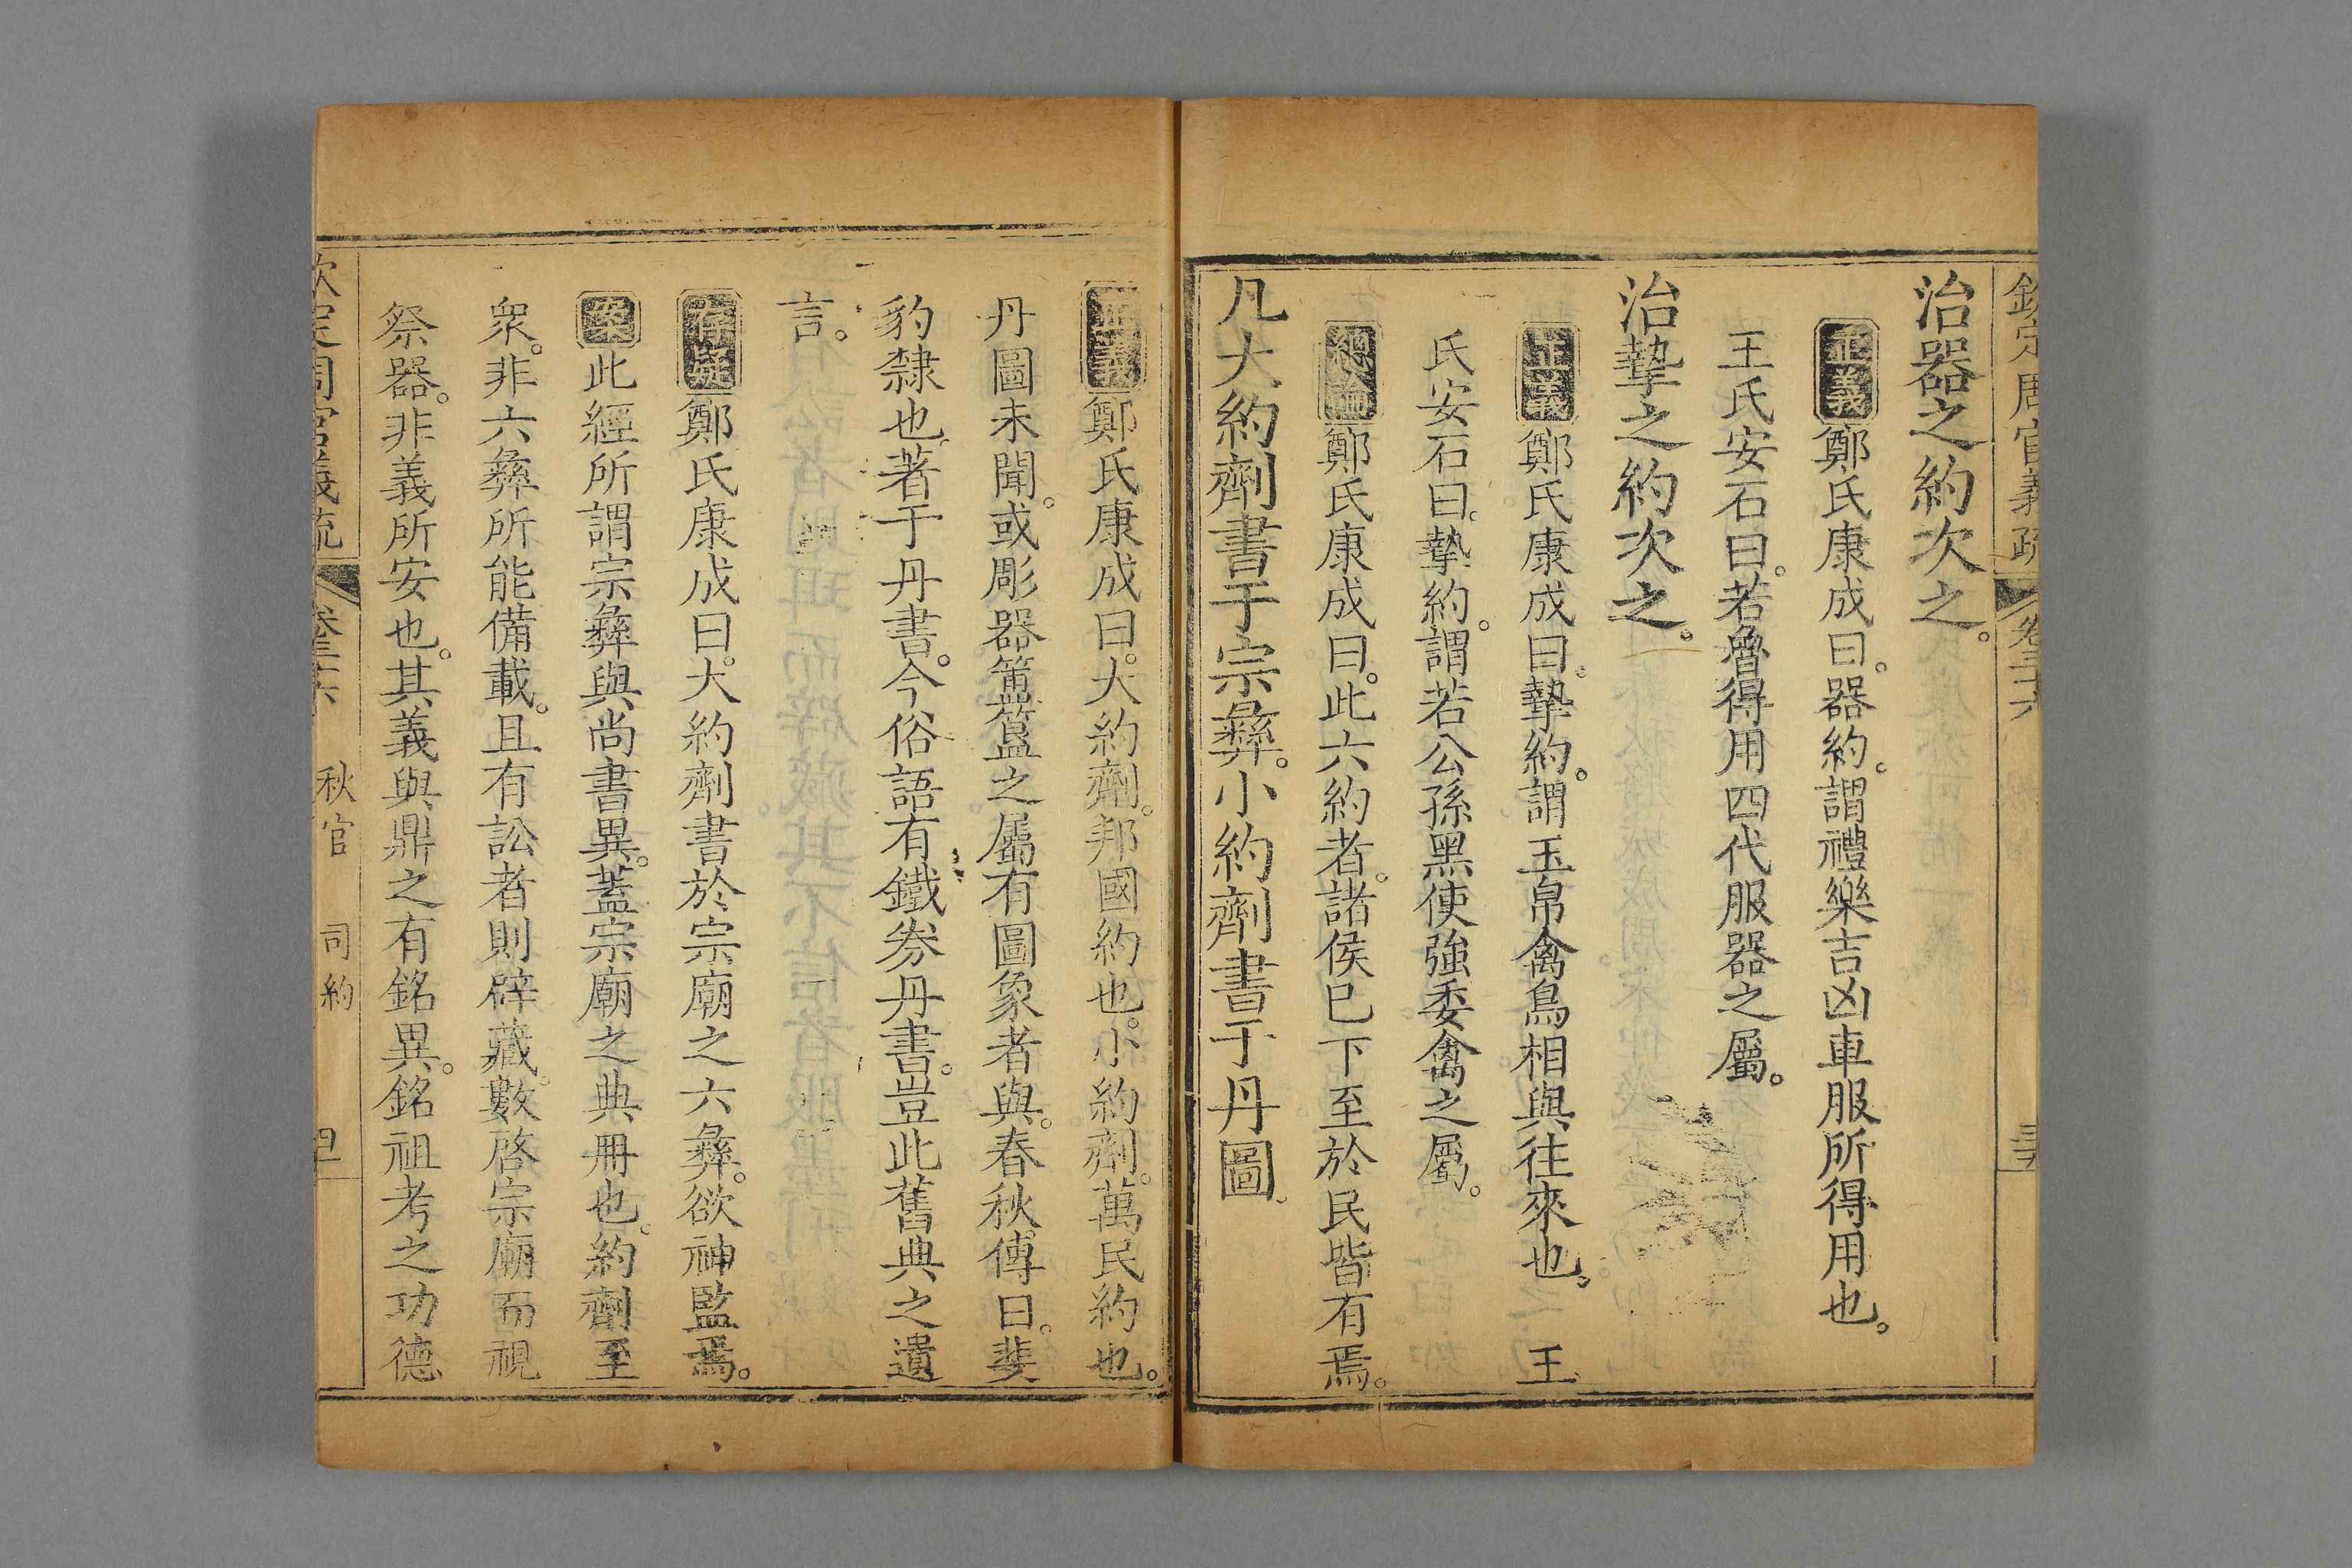 欽定周官義疏 卷三十六
治器之約次之。
正義鄭氏康成曰。器約。謂禮樂吉凶車服所得用也。
王氏安石曰。若魯得用四代服器之屬。
治摯之約次之。
正義鄭氏康成曰。摯約。謂玉帛禽鳥相與往來也。 王
氏安石曰。摯約。謂若公孫黑使強委禽之屬。
總論鄭氏康成曰。此六約者。諸侯已下至於民皆有焉。
凡大約劑書于宗彝。小約劑書于丹圖。
正義鄭氏康成曰。大約劑。邦國約也。小約劑。萬民約也。
丹圖未聞。或彫器簠簋之屬有圖象者與。春秋傳曰。斐
豹隸也。著于丹書。今俗語有鐵劵丹書。豈此舊典之遺
言。
存疑鄭氏康成曰。大約劑書於宗廟之六彝。欲神監焉。
案此經所謂宗彝與尚書異。蓋宗廟之典冊也。約劑至
衆。非六彝所能備載。且有訟者則辟藏。數啓宗廟而視
祭器。非義所安也。其義與鼎之有銘異。銘祖考之功德
欽定周官義疏 卷三十六 秋官 司約